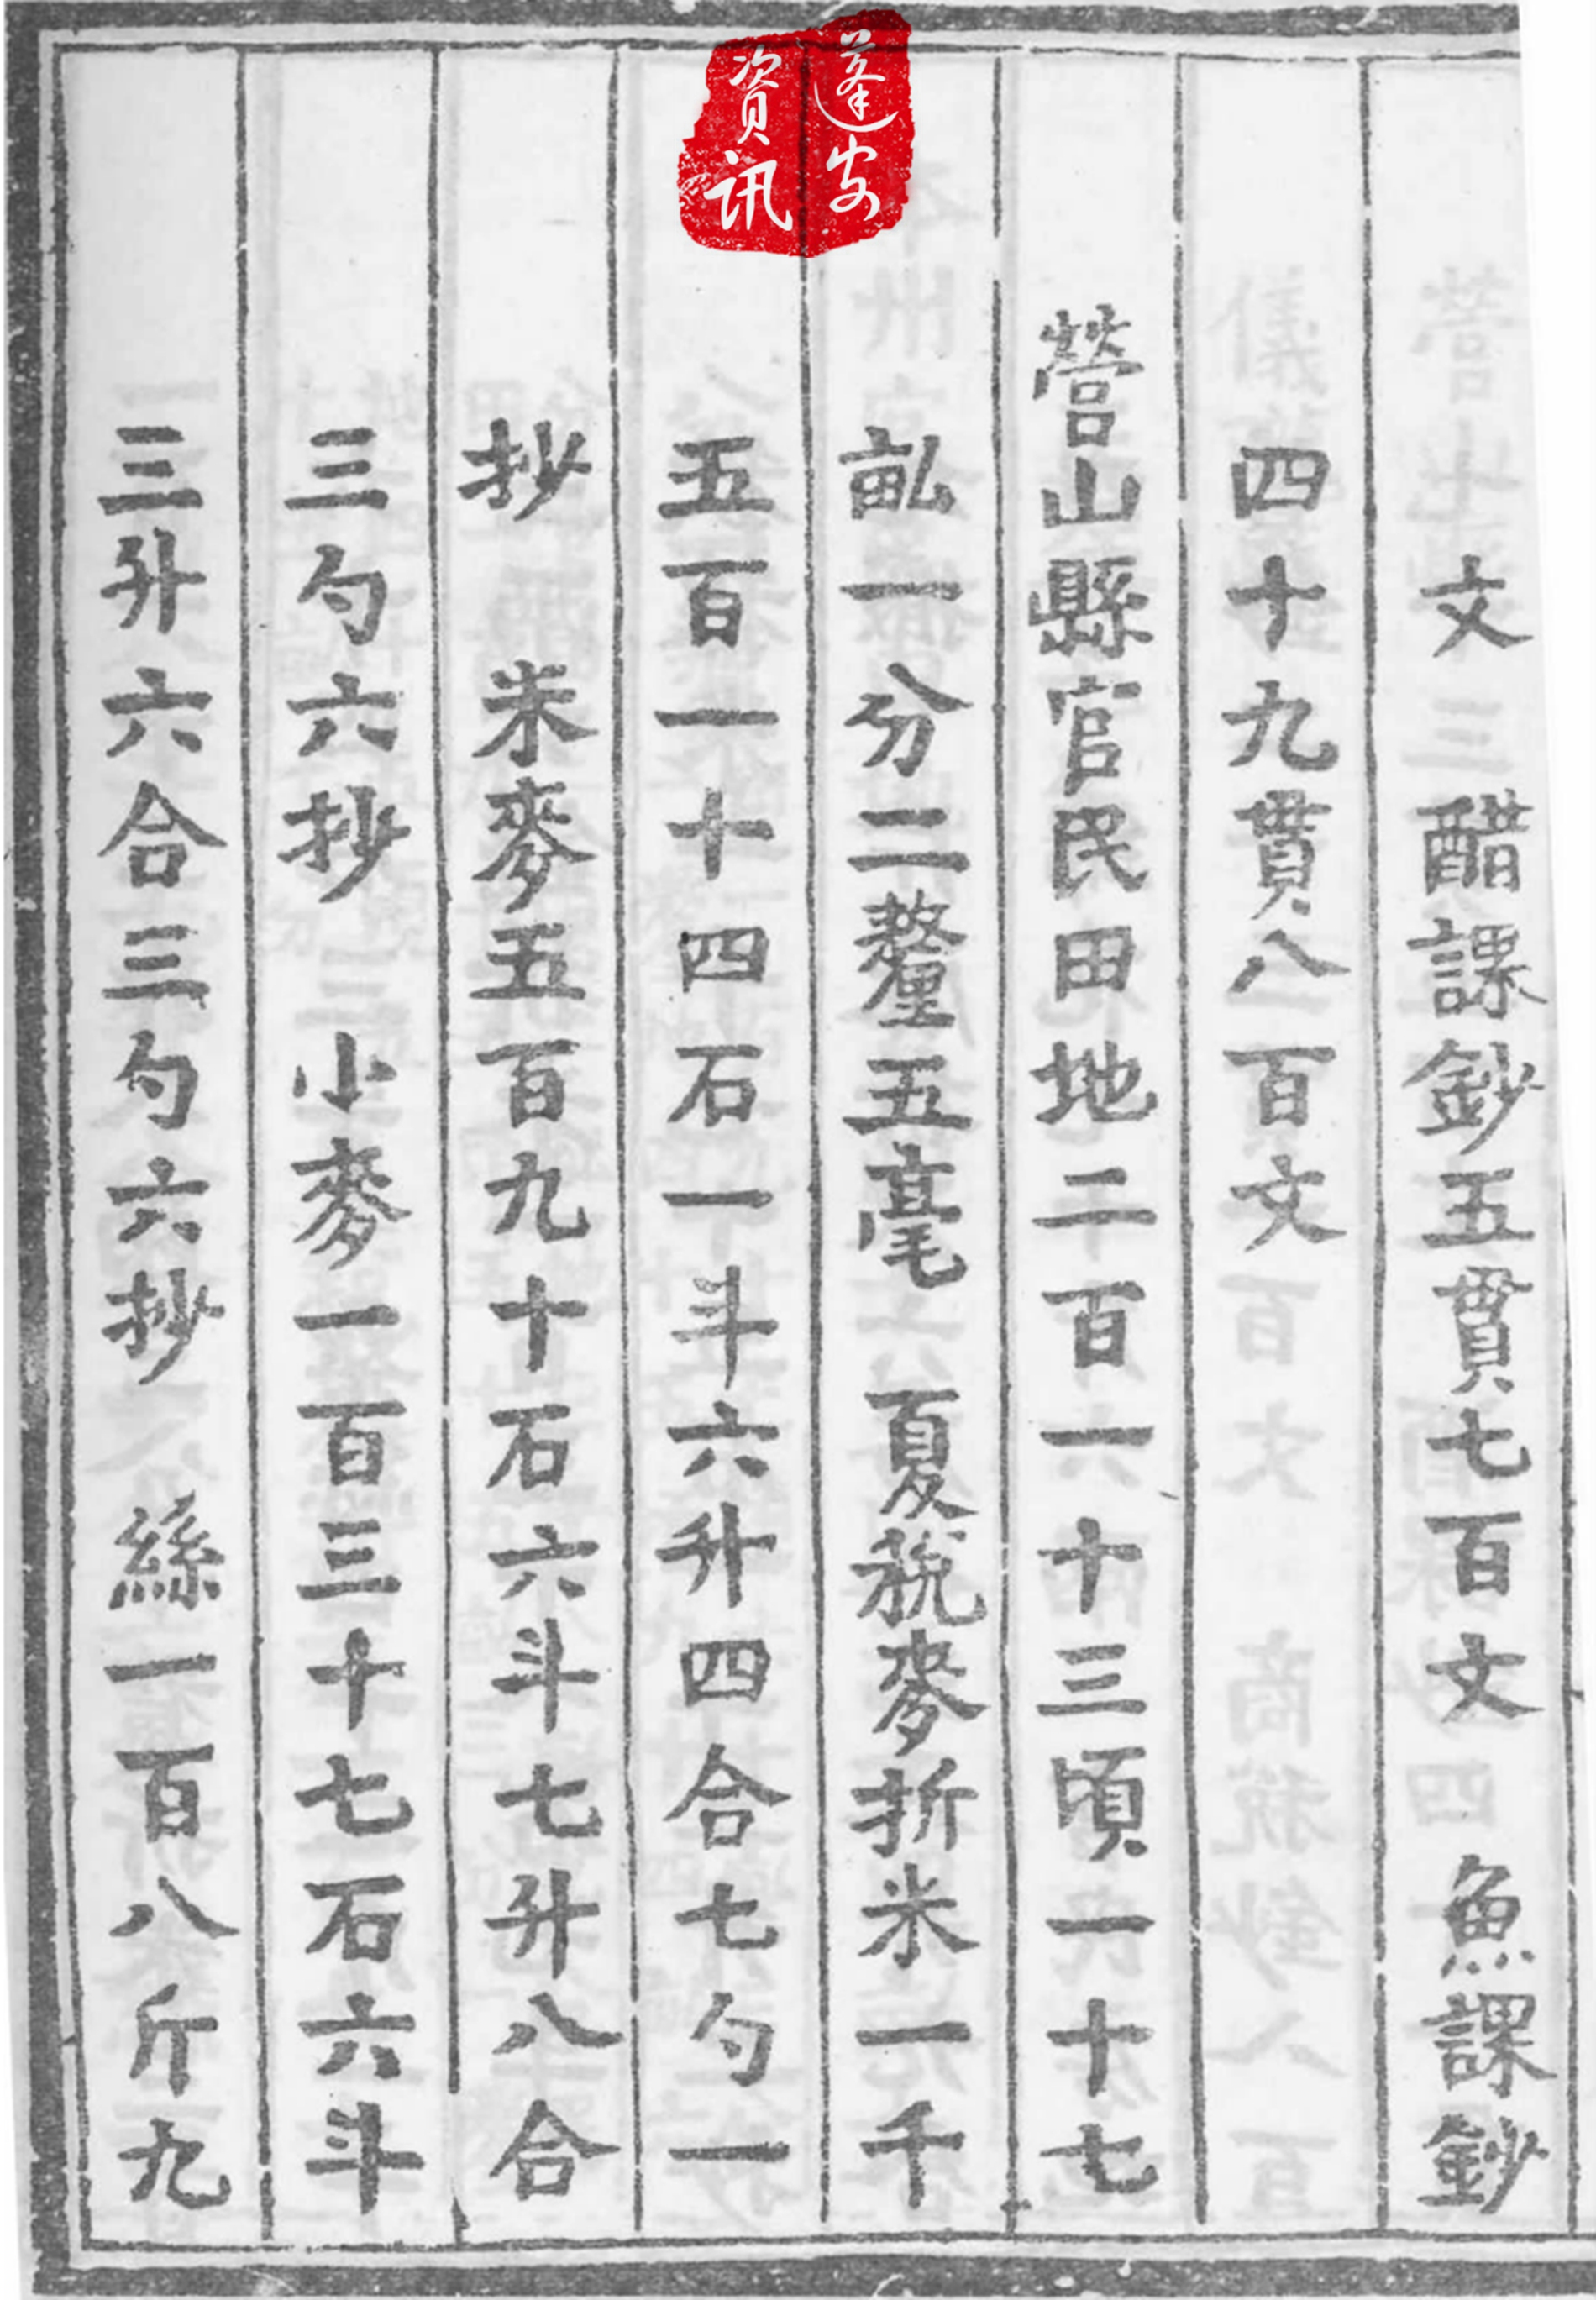 蓬安
资訊
文　醋課鈔五貫七百文　魚課鈔
四十九貫八百文
營山縣官民田地二百一十三頃一十七
畆一分二釐五毫　夏稅麥折米一千
五百一十四石一斗六升四合七勺一
抄　米麥五百九十石六斗七升八合
三勺六抄　小麥一百三十七石六斗
三升六合三勺六抄　絲一百八斤九